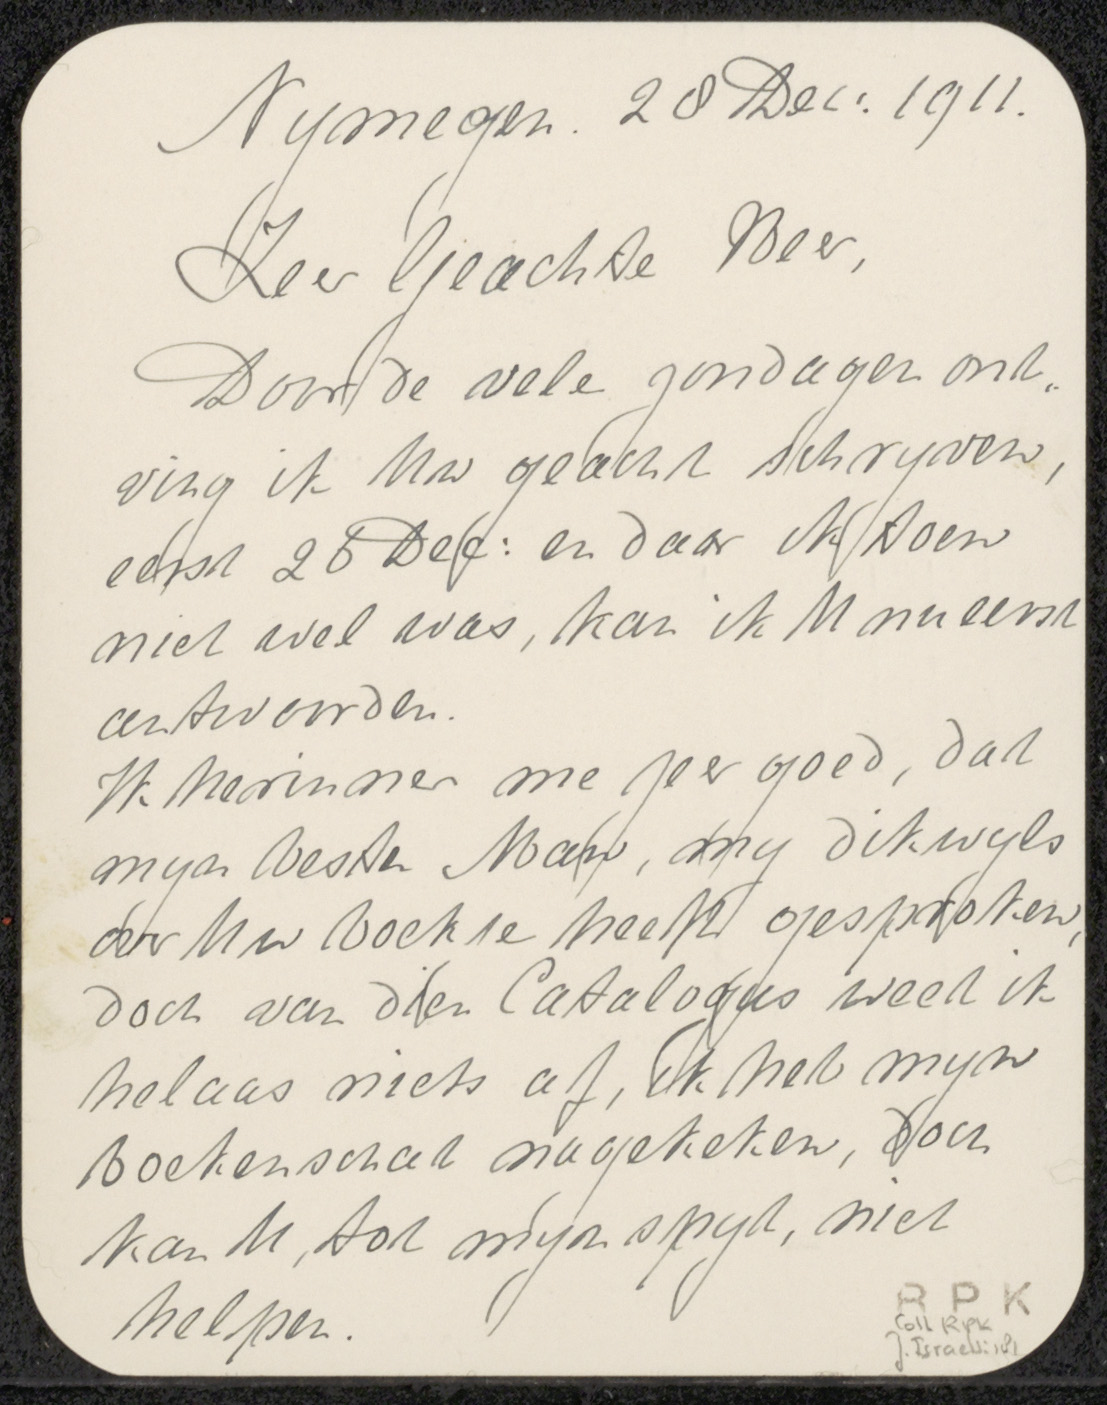 Nymegen. 28 Dec: 1911.
Zeer Geachte Heer,
Door de vele zondagen ont„
ving ik Uw geacht schryven,
eerst 26 Dec: en daar ik toen
niet wel was, kan ik U nu eerst
antwoorden.
Ik herinner me zeer goed, dat
myn beste Man, my dikwyls
over Uw boekje heeft gesproken,
doch van dien Catalogus weet ik
helaas niets af, ik heb myn
boekenschat nagekeken, doch
kan U, tot myn spyt, niet
helpen.
R P K
Coll RPK
J. Israels